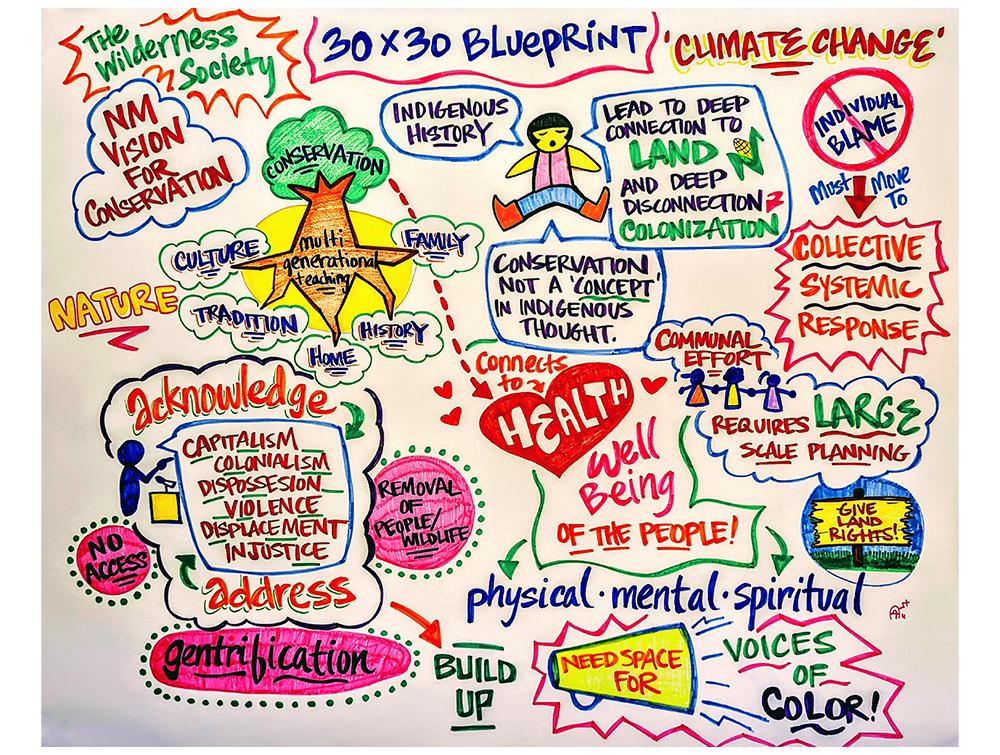 THE
Wilderness
Society
30 x 30 BLUEPRINT
'CLIMATE CHANGE'
NM
VISION
FOR
CONSERVATION
CONSERVATION
multi
generational
teaching
CULTURE
FAMILY
TRADITION
HISTORY
HOME
NATURE
INDIGENOUS
HISTORY
LEAD TO DEEP
CONNECTION TO
LAND
AND DEEP
DISCONNECTION
COLONIZATION
CONSERVATION
NOT A 'CONCEPT'
IN INDIGENOUS
THOUGHT.
INDIVIDUAL
BLAME
Must Move
To
COLLECTIVE
SYSTEMIC
RESPONSE
COMMUNAL
EFFORT
REQUIRES LARGE
SCALE PLANNING
GIVE
LAND
RIGHTS!
Connects
to
HEALTH
Well
Being
OF THE PEOPLE!
physical · mental · spiritual
acknowledge
CAPITALISM
COLONIALISM
DISPOSSESION
VIOLENCE
DISPLACEMENT
INJUSTICE
address
REMOVAL
OF
PEOPLE/
WILDLIFE
NO
ACCESS
gentrification
BUILD
UP
NEED SPACE
FOR
VOICES
OF
COLOR!